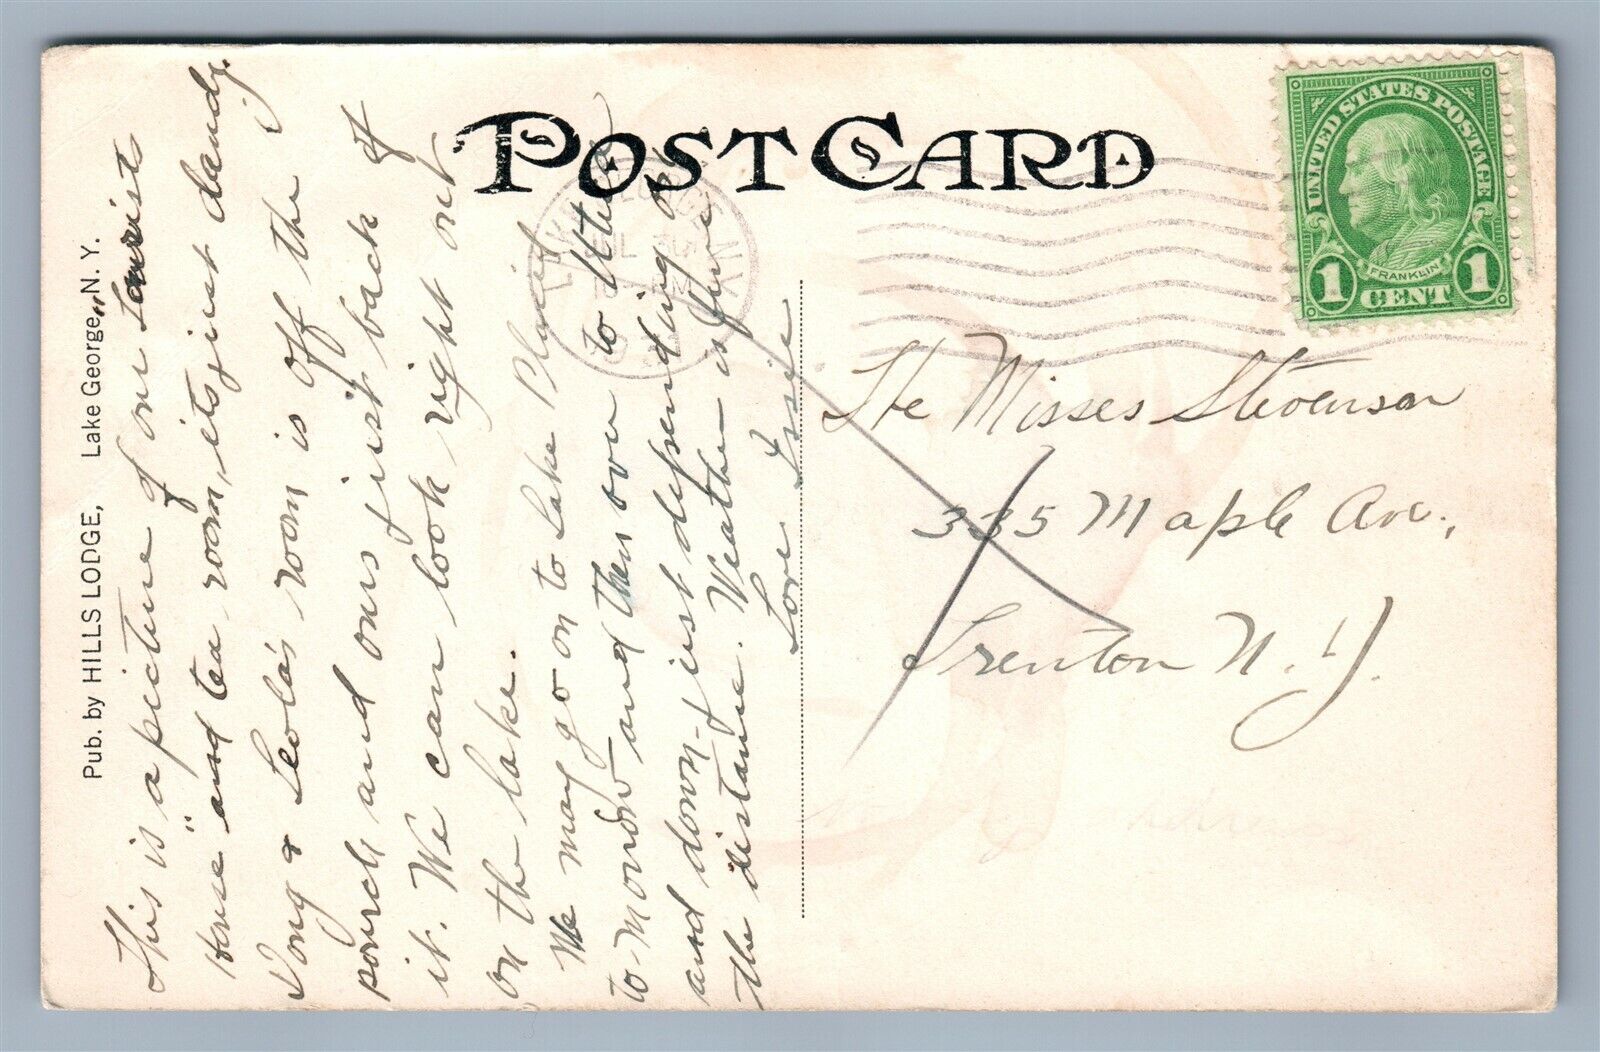 POST CARD
Pub. by HILLS LODGE, Lake George, N. Y.
This is a picture of our "Tourist
House" and tea room, its just dandy.
& Leola's room is off the
porch and ours just back of
it. We can look right out
on the lake.
We may go on to Lake Placid
to-morrow and then over to
and down - just depending on
the distance. Weather is fine
Love Issie
LAKE GEORGE
JUL
N.Y.
UNITED STATES POSTAGE
FRANKLIN
1 CENT 1
The Misses Stevenson
335 Maple Ave.,
Trenton N. J.